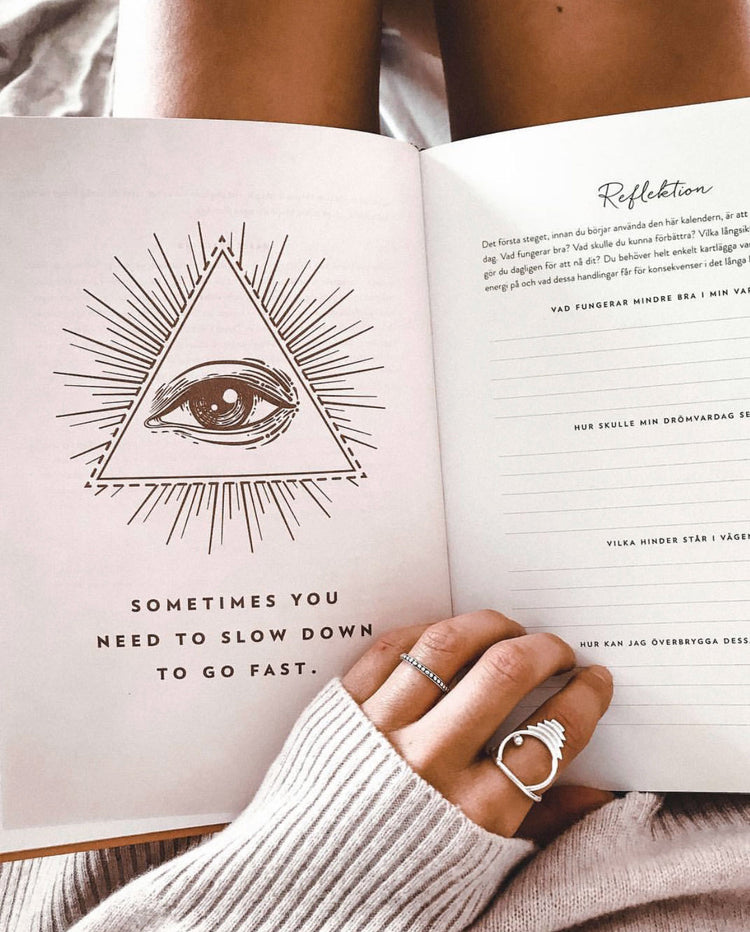 SOMETIMES YOU
NEED TO SLOW DOWN
TO GO FAST.
Reflektion
Det första steget, innan du börjar använda den här kalendern, är att
dag. Vad fungerar bra? Vad skulle du kunna förbättra? Vilka långsik
gör du dagligen för att nå dit? Du behöver helt enkelt kartlägga va
energi på och vad dessa handlingar får för konsekvenser i det långa
VAD FUNGERAR MINDRE BRA I MIN VAR
HUR SKULLE MIN DRÖMVARDAG SE
VILKA HINDER STÅR I VÄGEN
HUR KAN JAG ÖVERBRYGGA DESS